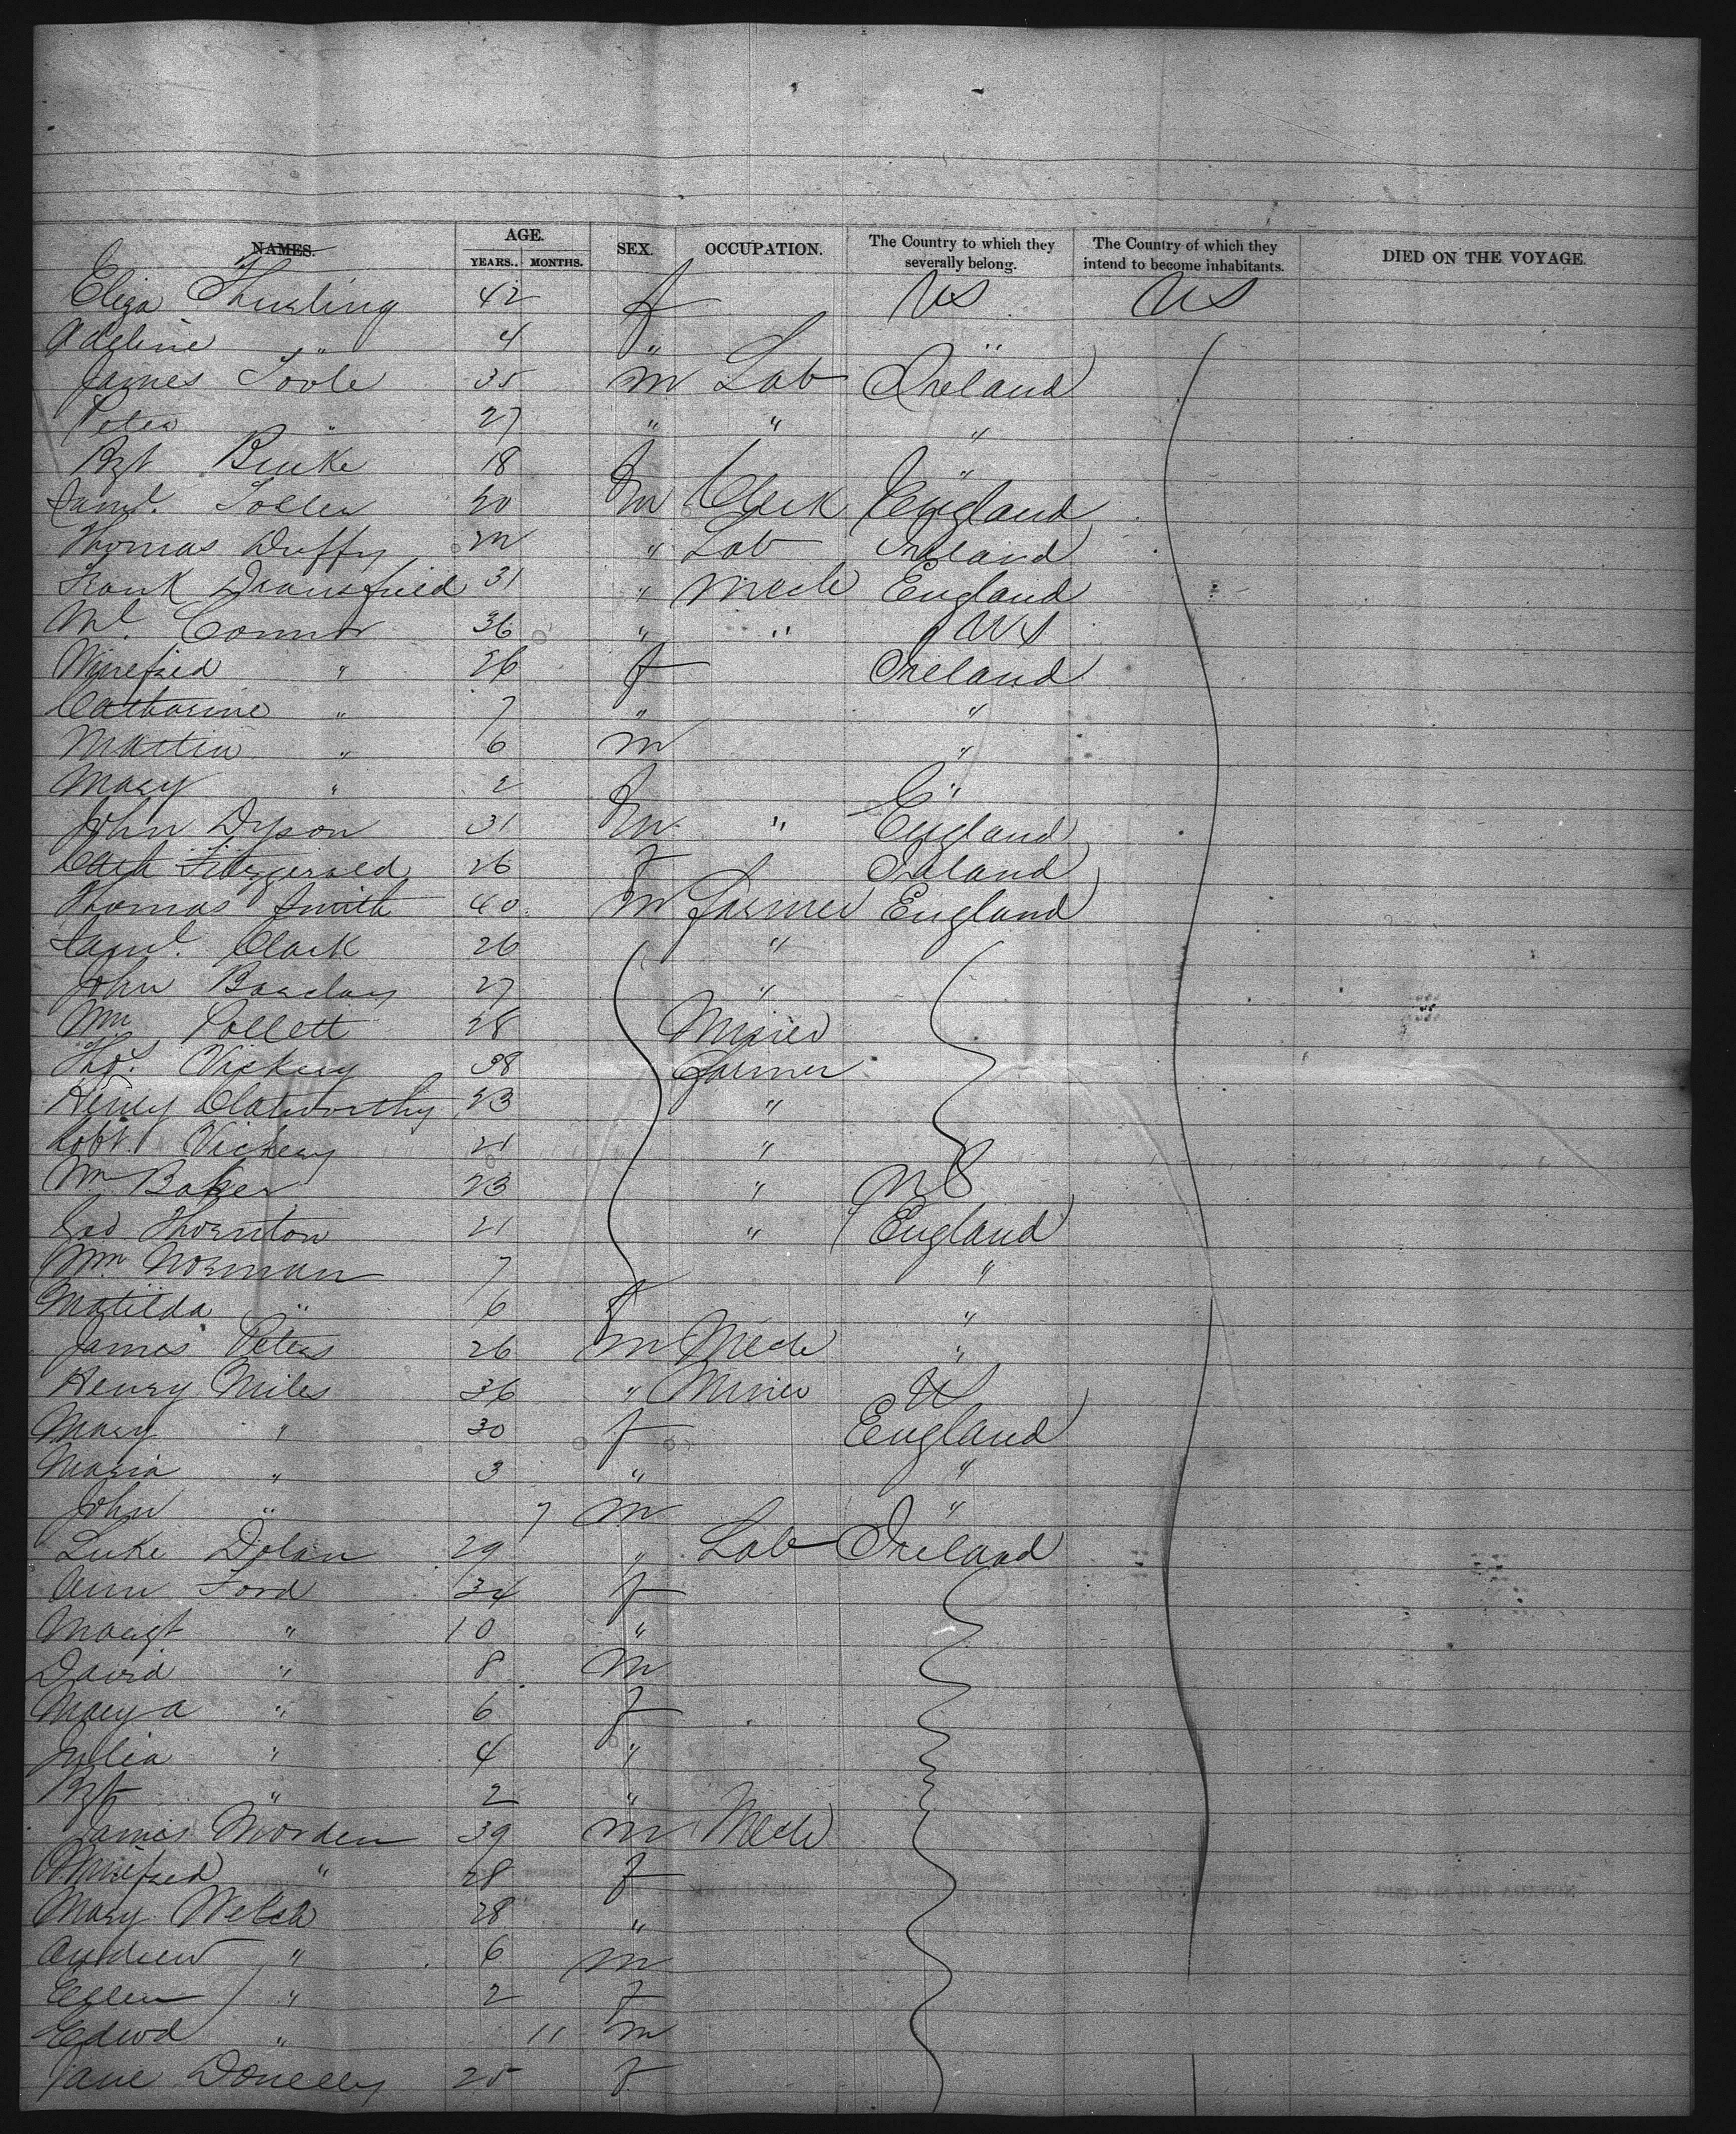 NAMES. AGE. SEX. OCCUPATION. The Country to which they severally belong. The Country of which they intend to become inhabitants. DIED ON THE VOYAGE.
YEARS. MONTHS.
Eliza Thurling 42 f US US
Adeline " 4 " "
James Toole 35 m Lab Ireland
Peter " 27 " " "
Bgt Burke 18 f "
Saml. Toller 20 m Clerk England
Thomas Duffy 22 " Lab Ireland
Frank Dransfield 31 " Mech England
Ml. Connor 36 " " US
Winefred " 26 f Ireland
Catharine " 7 " "
Martin " 6 m "
Mary " 2 f "
John Dyson 31 m " England
Cath Fitzgerald 26 f Ireland
Thomas Smith 40 m Farmer England
Saml. Clark 26 "
John Barclay 27 "
Wm Pollett 28 Miner
Thos. Vickery 38 Farmer
Henry Clatworthy 23 "
Robt. Vickery 21 "
Wm Baker 23 " US
Geo Thornton 21 " England
Wm Norman 7 "
Matilda " 6 f "
James Peters 26 m Mech "
Henry Miles 36 " Miner US
Mary " 30 f England
Maria " 3 " "
John " 7 m "
Luke Dolan 29 " Lab Ireland
Ann Ford 34 f
Margt " 10 "
David " 8 m
Mary A " 6 f
Julia " 4 "
Bgt " 2 "
James Worden 39 m Mech
Winifred " 28 f
Mary Welch 28 "
Andrew " 6 m
Ellen " 2 f
Edwd " 11 m
Jane Donelly 25 f